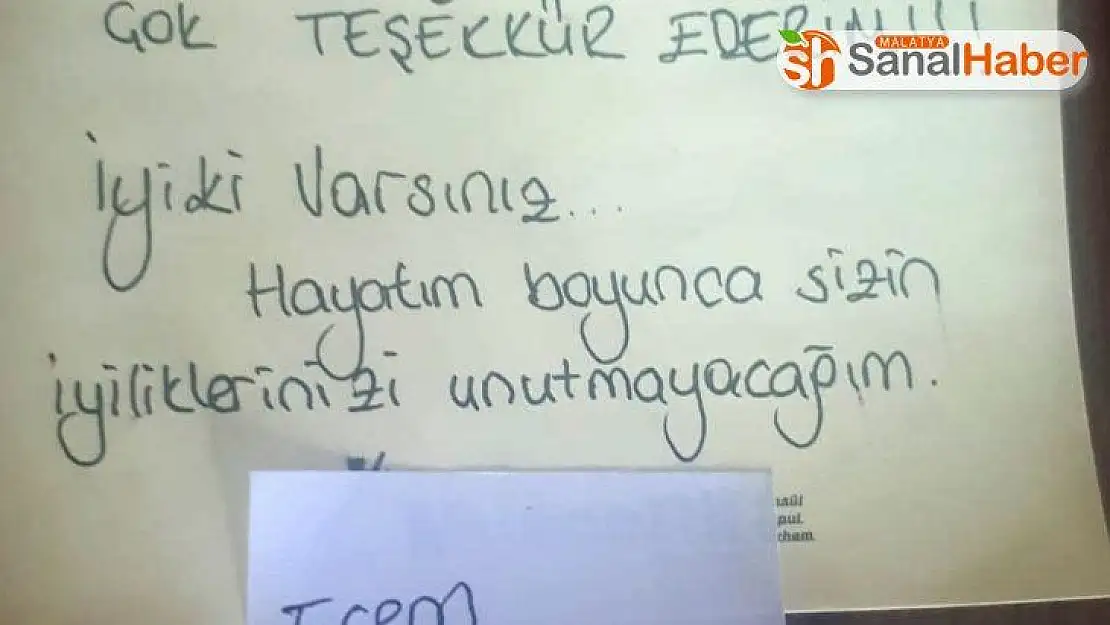 ÇOK TEŞEKKÜR EDERİM!!!
MALATYA
sh SanalHaber
İyiki Varsınız...
Hayatım boyunca sizin
iyiliklerinizi unutmayacağım.
pul.
cham
İrem